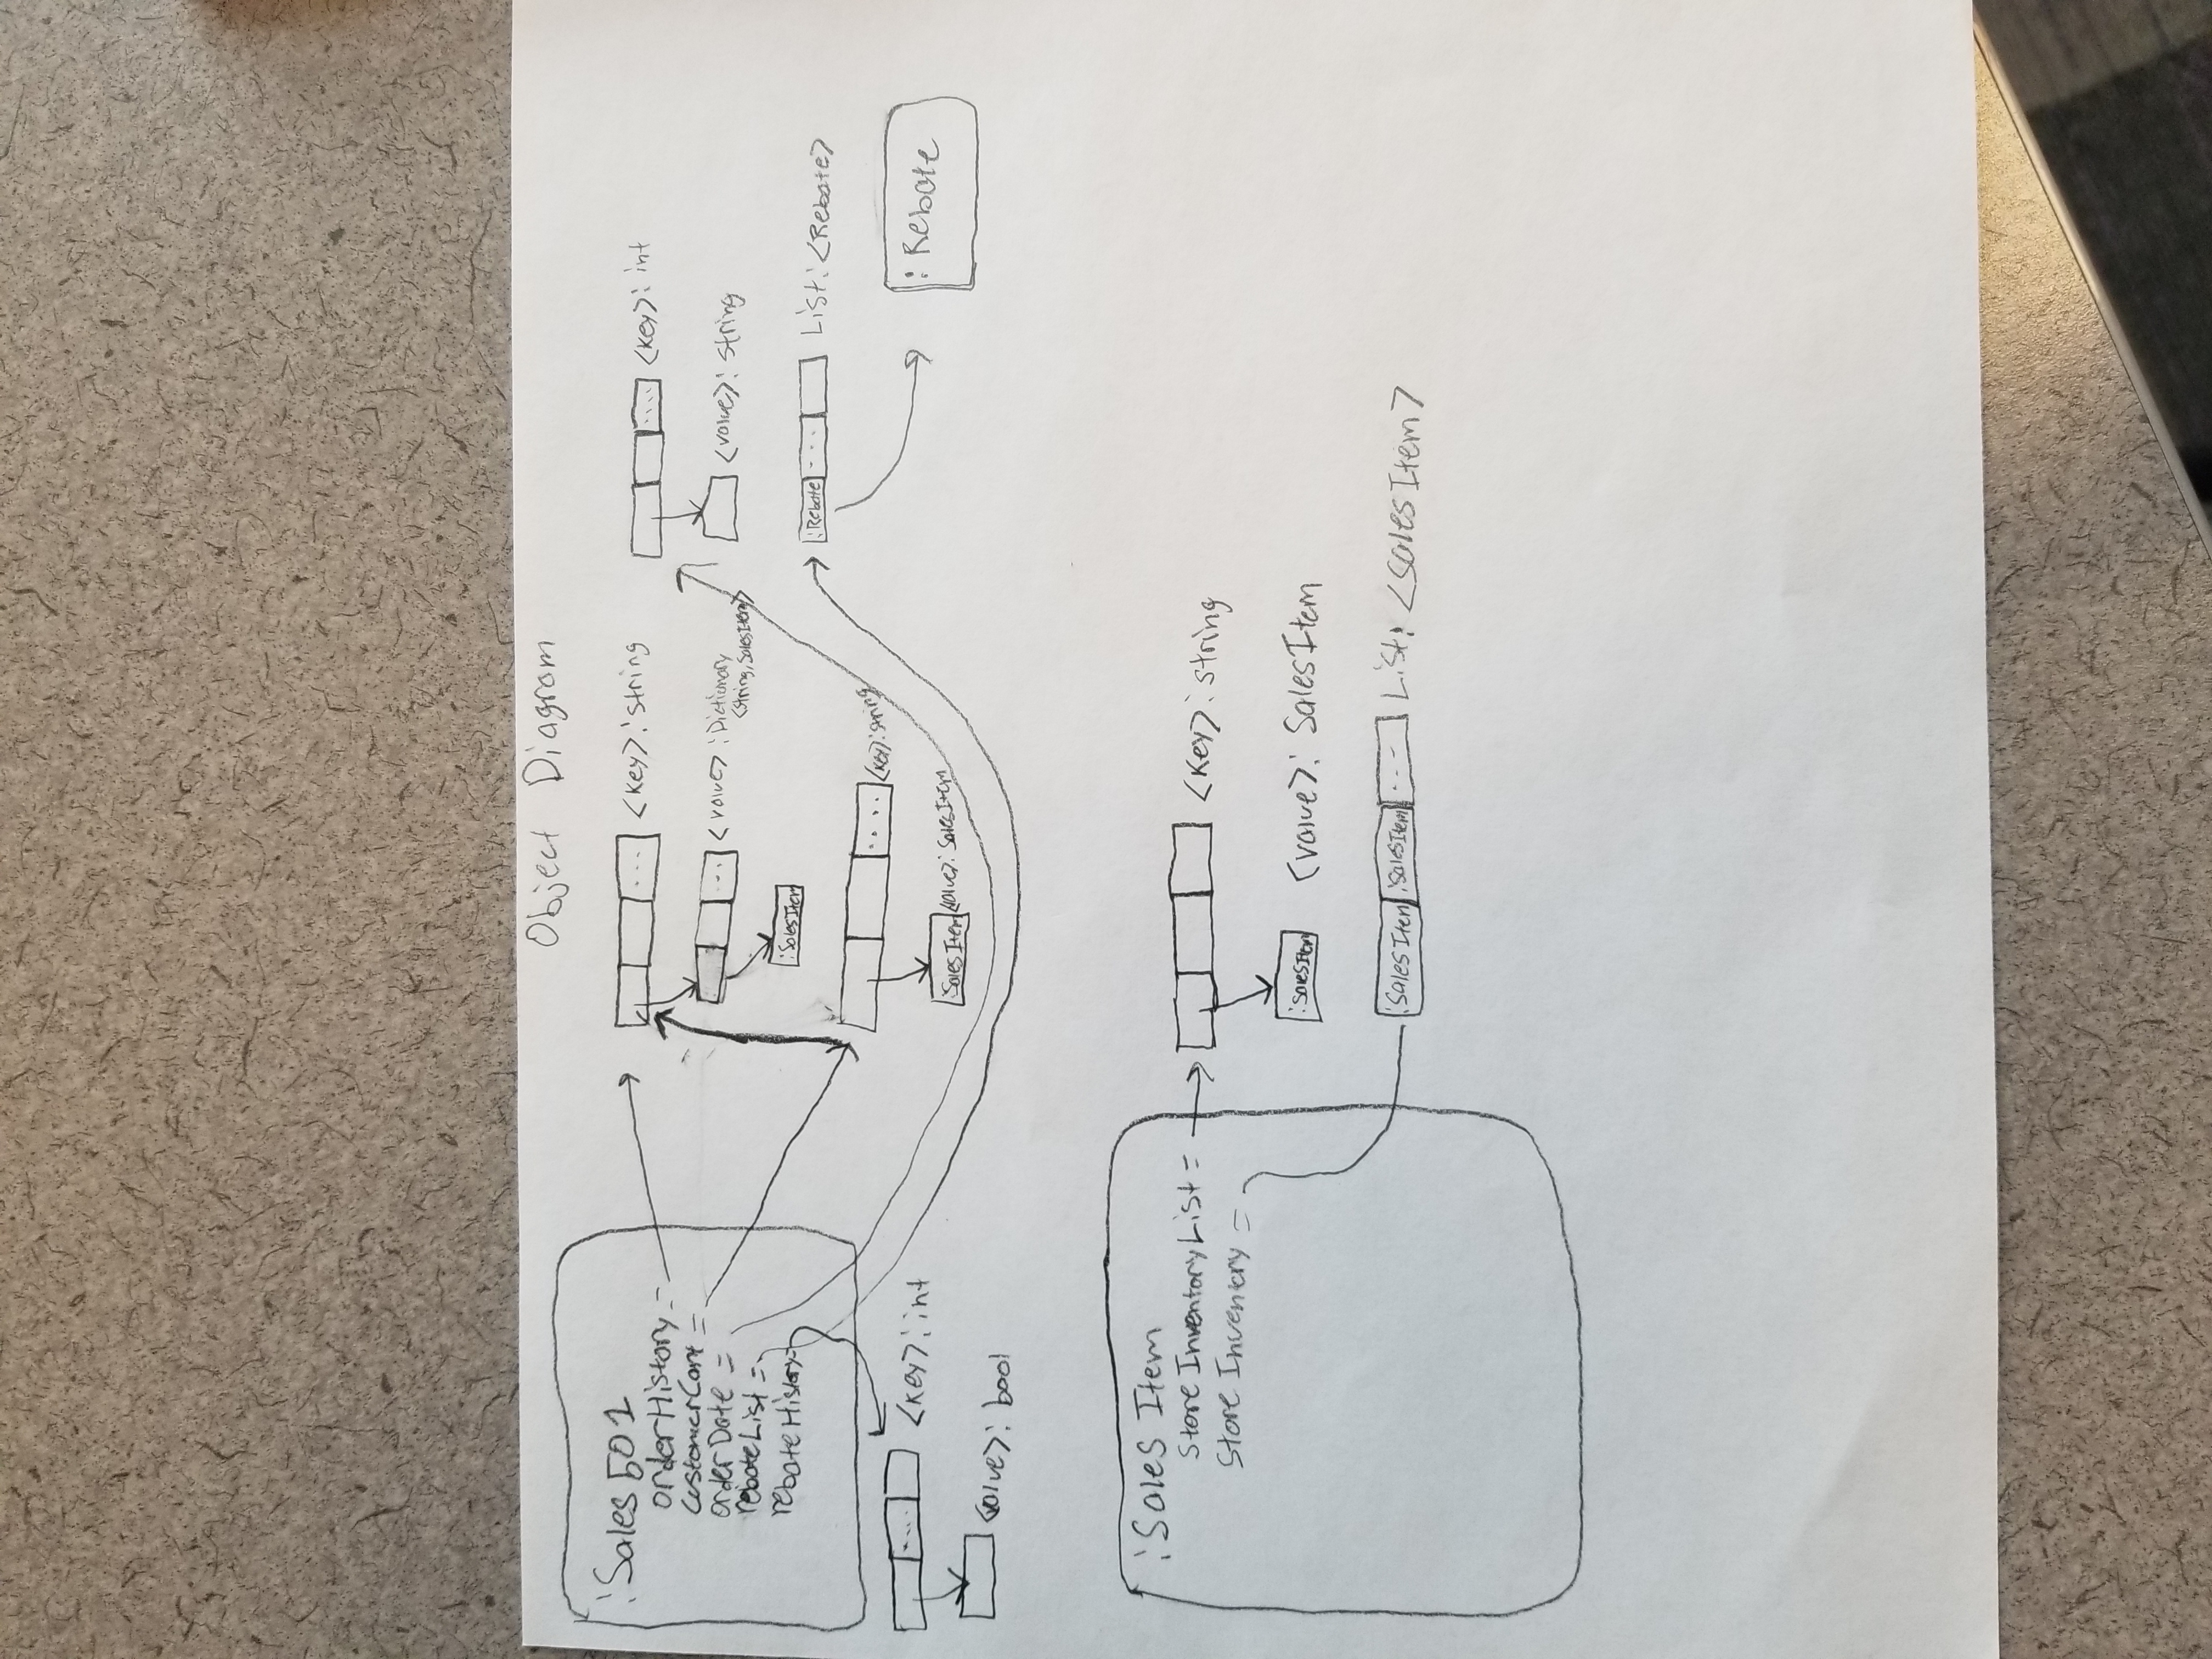 Object Diagram
:Sales501
orderHistory =
customerCart =
orderDate =
rebateList =
rebateHistory=
<key>:string
<value>:Dictionary
<string,SalesItem>
:SalesItem
<key>:string
:SalesItem <value>:SalesItem
<key>:int
<value>:string
:Rebate .... List:<Rebate>
:Rebate
.... <key>:int
<value>: bool
:Sales Item
Store InventoryList =
Store Inventory =
<key>:string
:SalesItem <value>: SalesItem
:SalesItem :SalesItem --- List: <SalesItem>